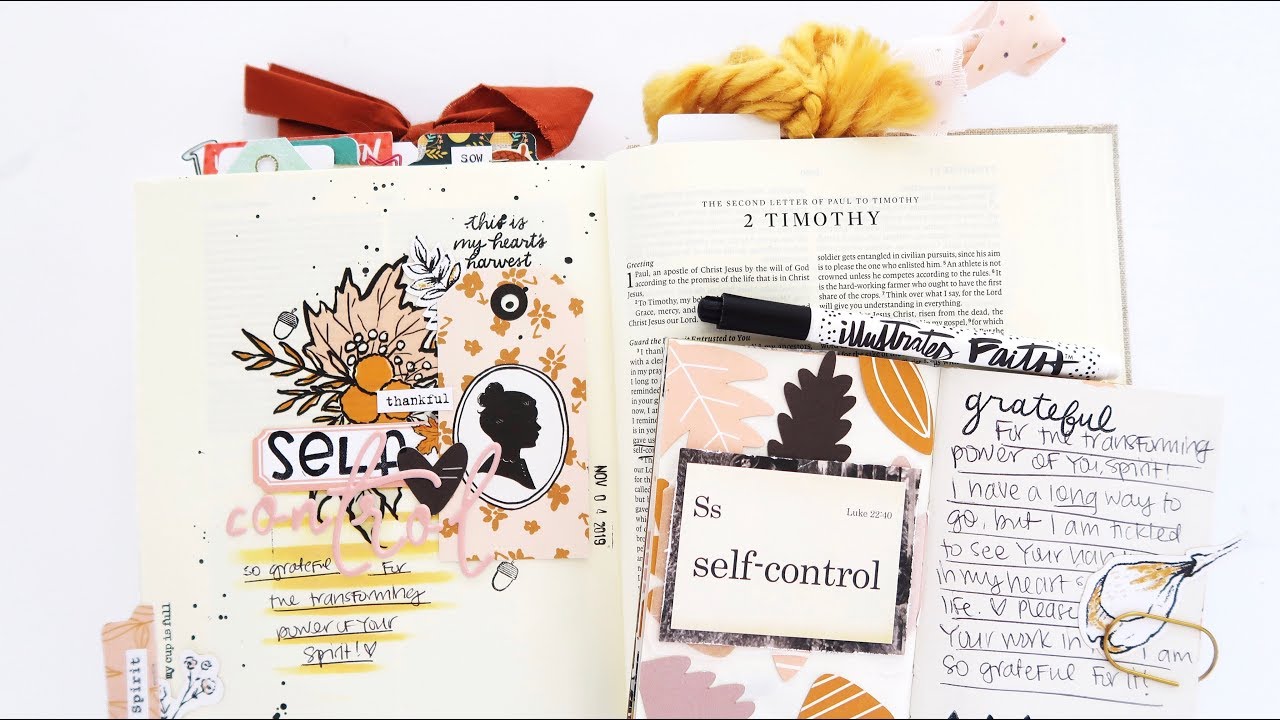 SOW
this is
my heart's
harvest
thankful
self
control
NOV 04 2019
so grateful for
the transforming
power of your
spirit!
my cup is full
spirit
THE SECOND LETTER OF PAUL TO TIMOTHY
2 TIMOTHY
Greeting
1 Paul, an apostle of Christ Jesus by the will of God
according to the promise of the life that is in Christ
Jesus,
2 To Timothy, my
Grace, mercy, and
Christ Jesus our Lord.
Guard the
Entrusted to You
soldier gets entangled in civilian pursuits, since his aim
is to please the one who enlisted him. 5 An athlete is not
crowned unless he competes according to the rules. 6 It
is the hard-working farmer who ought to have the first
share of the crops. 7 Think over what I say, for the Lord
will give you understanding in everything.
Jesus Christ, risen from the dead, the
my gospel, 9 for which
illustrated Faith™
Ss
Luke 22:40
self-control
grateful
For the transforming
power of You, spirit!
I have a long way to
go, but I am tickled
to see Your
in my heart
life. ♡ Please
Your work in I am
so grateful for it!